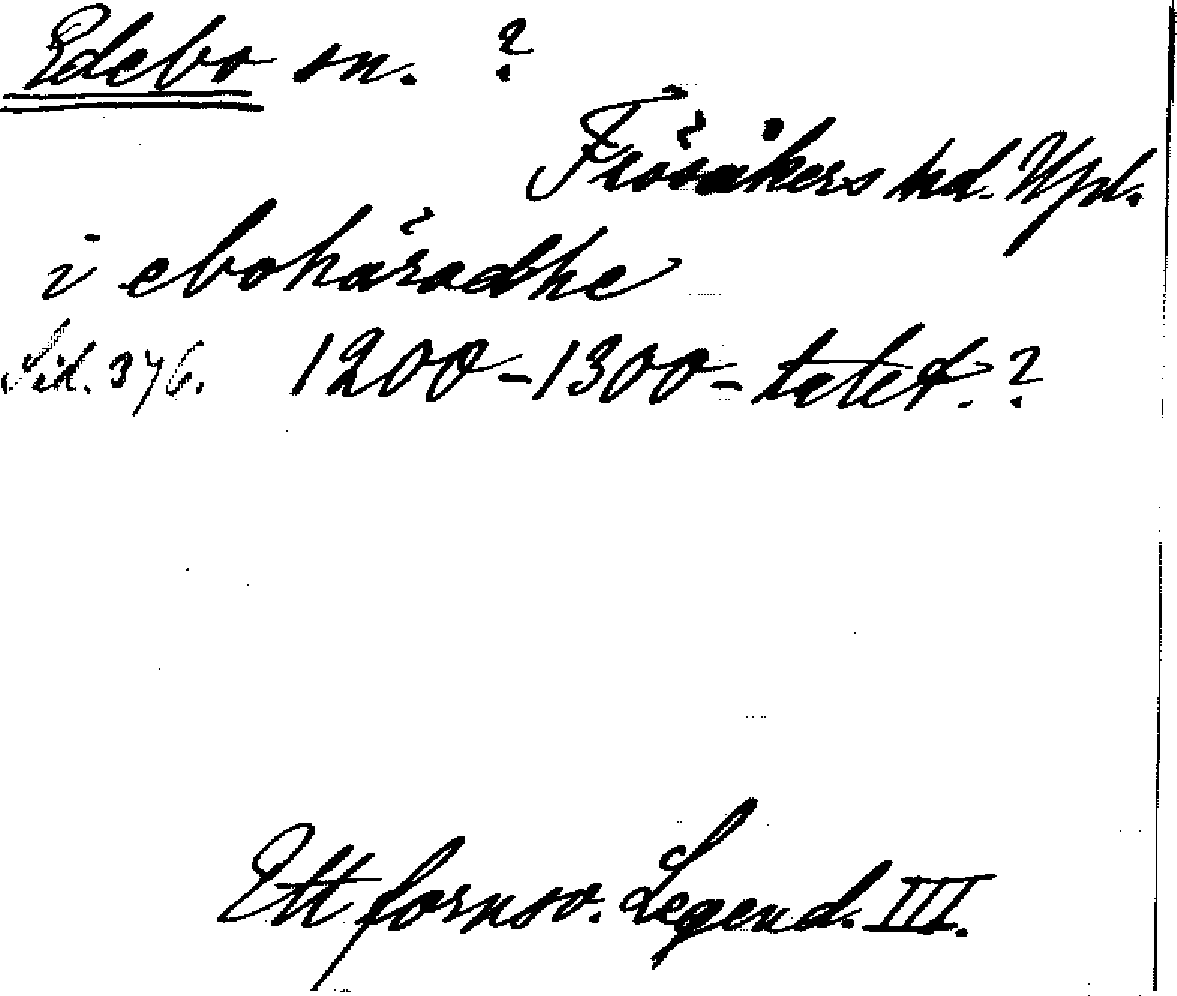 Edebo sn. ?
Frösåkers hd. Upl.
i ebohäradhe
Sid. 376. 1200-1300-talet.?
Ett fornsv. Legend. III.